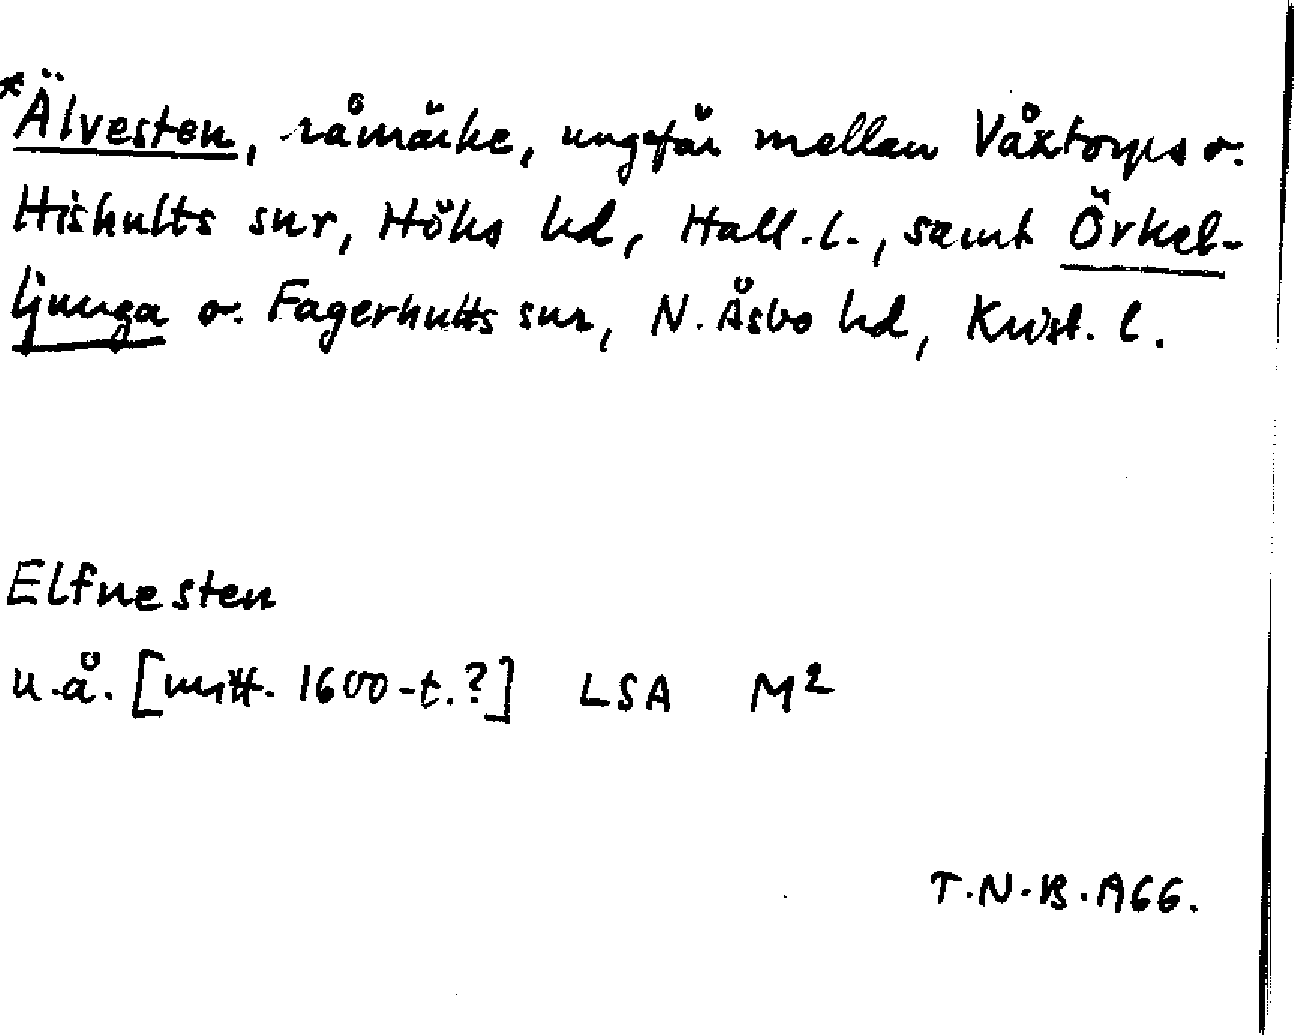 *Älvesten, råmärke, ungefär mellan Våxtorps o.
Hishults snr, Höks hd, Hall. l., samt Örkel-
ljunga o. Fagerhults snr, N. Åsbo hd, Krist. l.
Elfuesten
u.å. [mitt. 1600-t.?] LSA M²
T.N.B. A66.